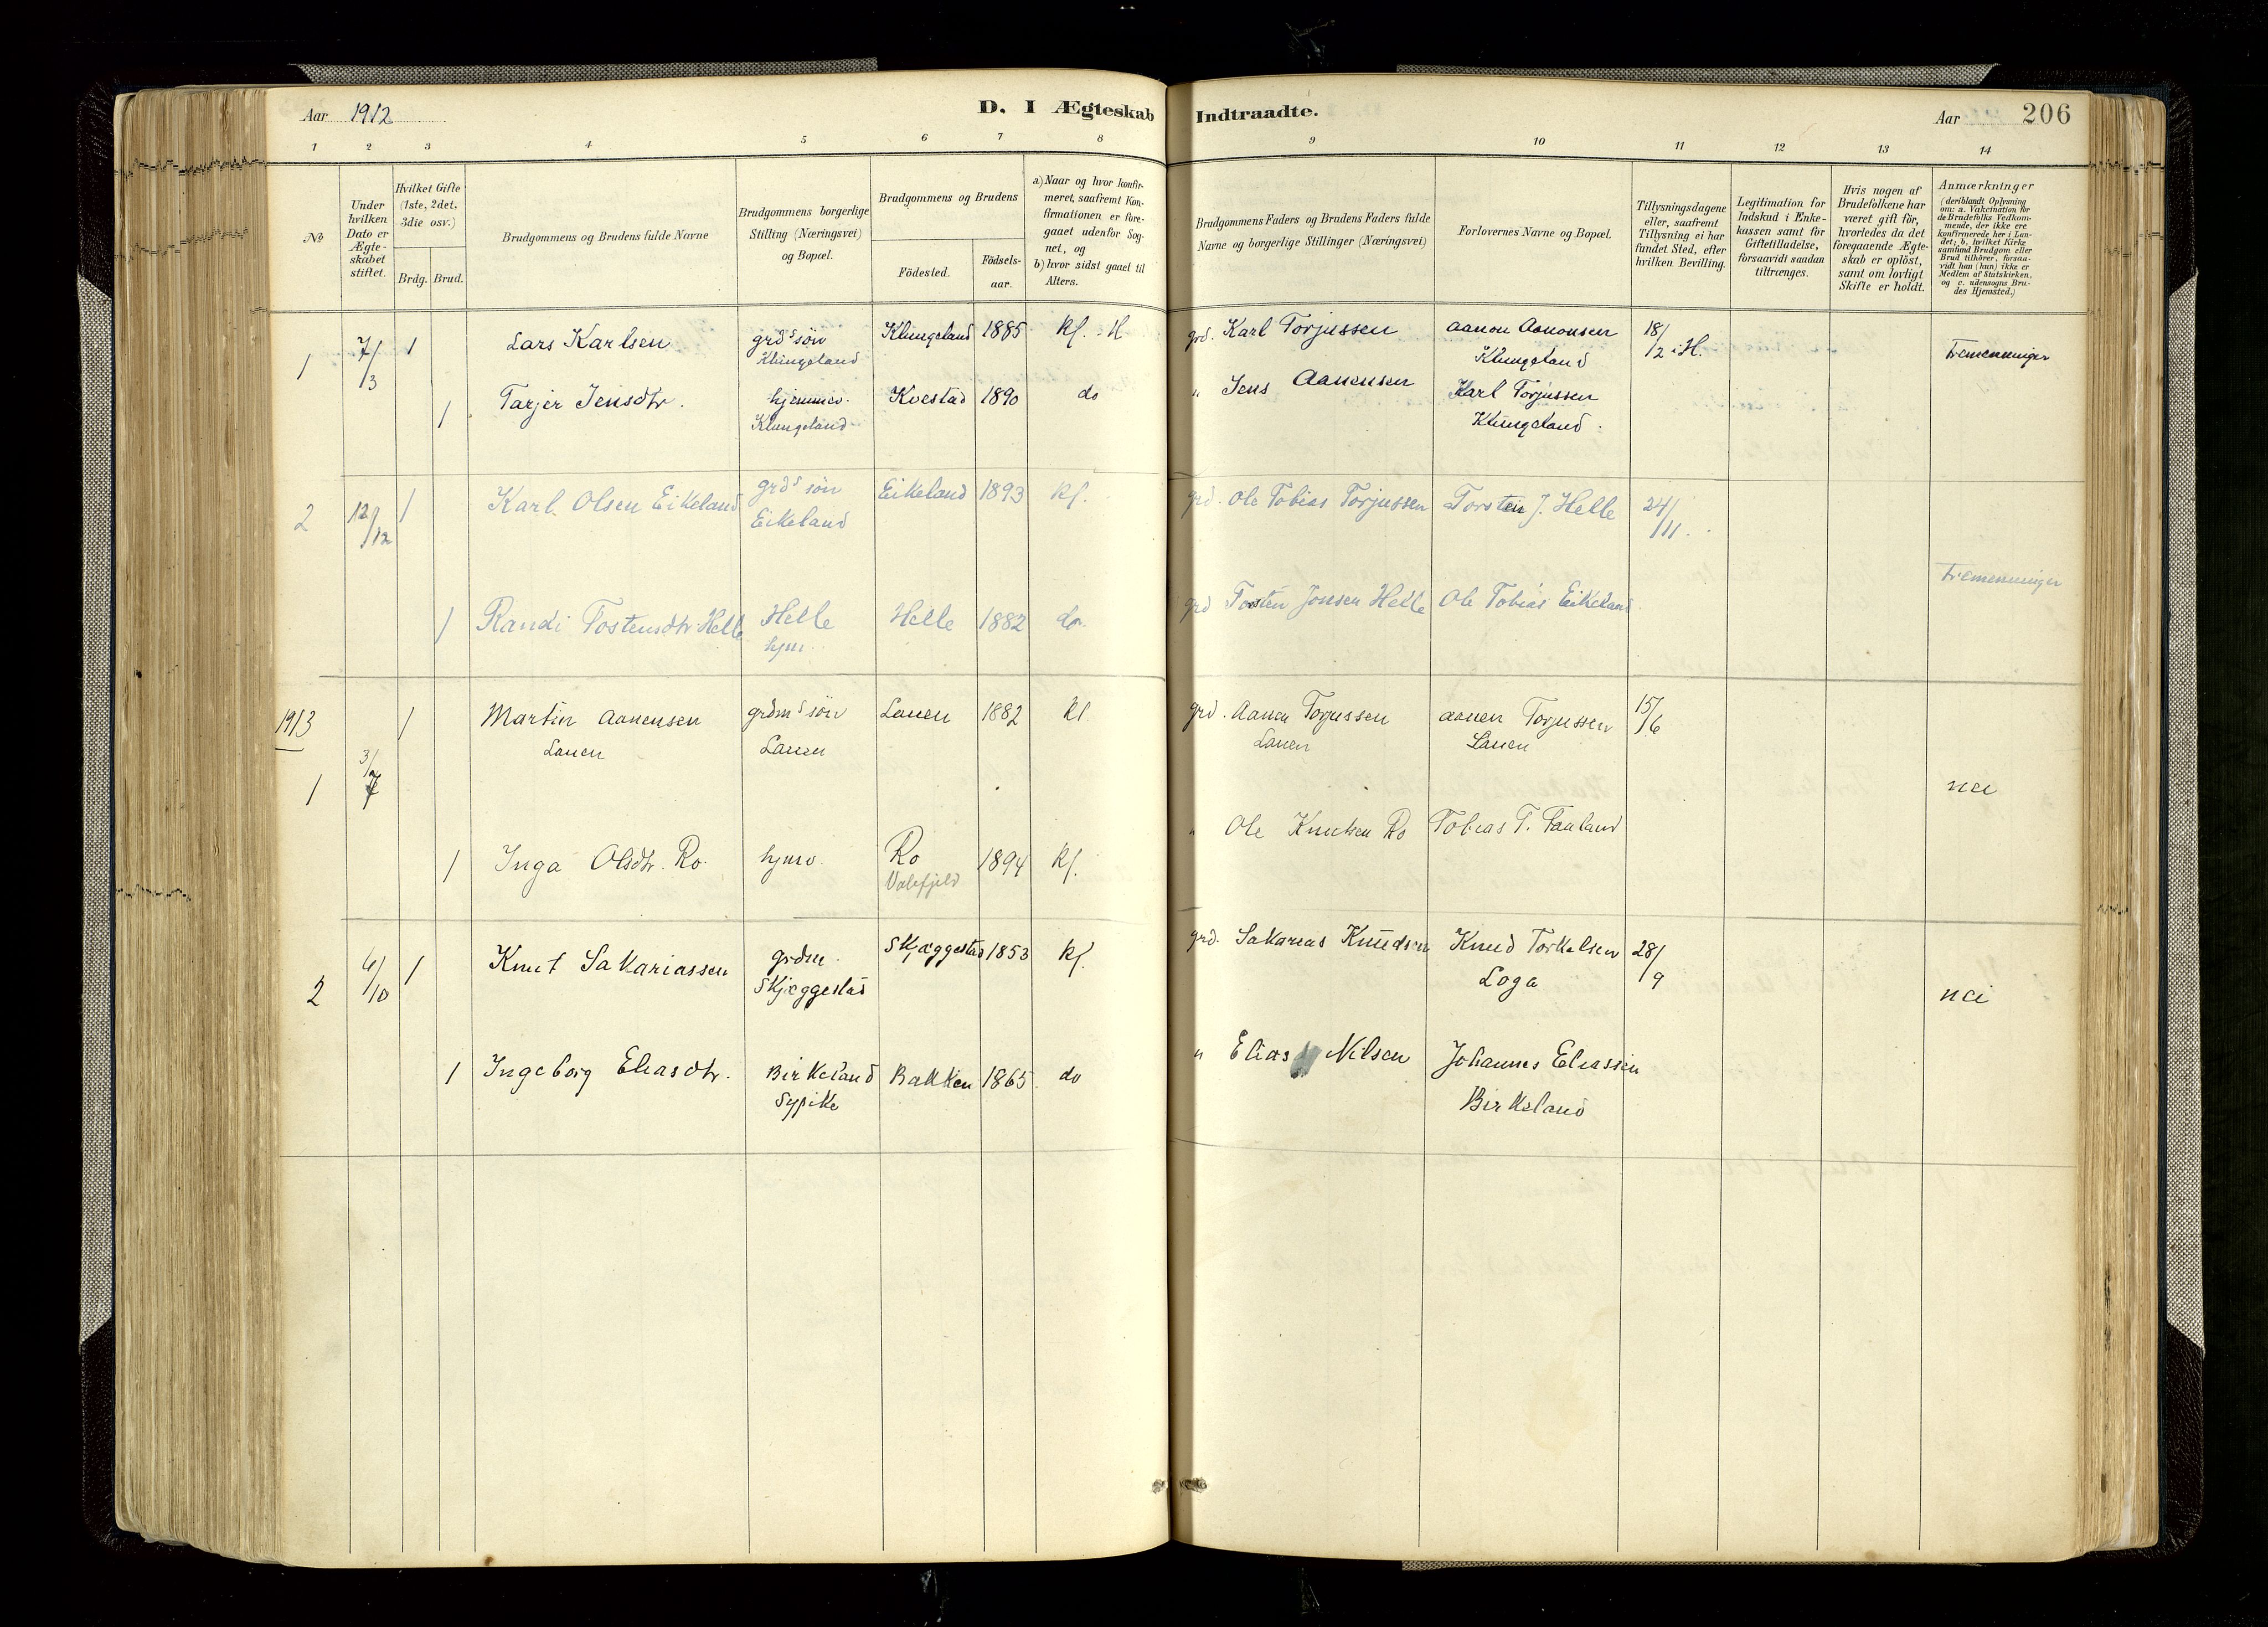 Aar 1912 D. I Ægteskab Indtraadte. Aar 206
1 2 3 4 5 6 7 8 9 10 11 12 13 14
№
Under hvilken Dato er Ægteskabet stiftet.
Hvilket Gifte (1ste, 2det, 3die osv.)
Brdg. Brud.
Brudgommens og Brudens fulde Navne
Brudgommens borgerlige Stilling (Næringsvei) og Bopæl.
Brudgommens og Brudens
Födested. Födselsaar.
a) Naar og hvor konfirmeret, saafremt Konfirmationen er foregaaet udenfor Sognet, og
b) hvor sidst gaaet til Alters.
Brudgommens Faders og Brudens Faders fulde Navne og borgerlige Stillinger (Næringsvei)
Forlovernes Navne og Bopæl.
Tillysningsdagene eller, saafremt Tillysning ei har fundet Sted, efter hvilken Bevilling.
Legitimation for Indskud i Enkekassen samt for Giftetilladelse, forsaavidt saadan tiltrænges.
Hvis nogen af Brudefolkene har været gift för, hvorledes da det foregaaende Ægteskab er oplöst, samt om lovligt Skifte er holdt.
Anmærkninger
(deriblandt Oplysning om: a. Vakcination for de Brudefolks Vedkommende, der ikke ere konfirmerede her i Landet; b. hvilket Kirkesamfund Brudgom eller Brud tilhörer, forsaavidt han (hun) ikke er Medlem af Statskirken, og c. udensogns Brudes Hjemsted.)
1 7/3 1 Lars Karlsen grdˢ sön Klungeland 1885 Kf. i H grd. Karl Torjussen Aanon Aanonsen 18/2 i H. Tremenninger
Klungeland Klungeland
1 Tarjer Jensdtr. hjemmev. Kvestad 1890 do " Jens Aanensen Karl Torjussen
Klungeland Klungeland.
2 12/12 1 Karl Olsen Eikeland grdˢ sön Eikeland 1893 Kf. grd. Ole Tobias Torjussen Torsten J. Helle 24/11.
Eikeland
Tremenninger
1 Randi Tostensdtr Helle Helle Helle 1882 do. grd Torsten Jonsen Helle Ole Tobias Eikeland.
hjm.
1913 1 Martin Aanensen grdmˢ sön Lauen 1882 Kf. grd. Aanen Torjussen Aanen Torjussen 15/6
Lauen Lauen Lauen Lauen
1 3/7 nei
" Ole Knutsen Ro Tobias T. Fauland
1 Inga Olsdtr. Ro. hjmv. Ro 1894 Kf.
2 6/10 1 Knut Sakariassen grdm. Skjæggestad 1853 Kf. grd. Sakarias Knudsen Knud Torkelsen 28/9
Skjæggestad Loga nei
1 Ingeborg Eliasdtr. Birkeland Bakken 1865 do " Elias Nilsen Johannes Eliassen
Sypike Birkeland